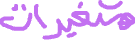 متغيرات